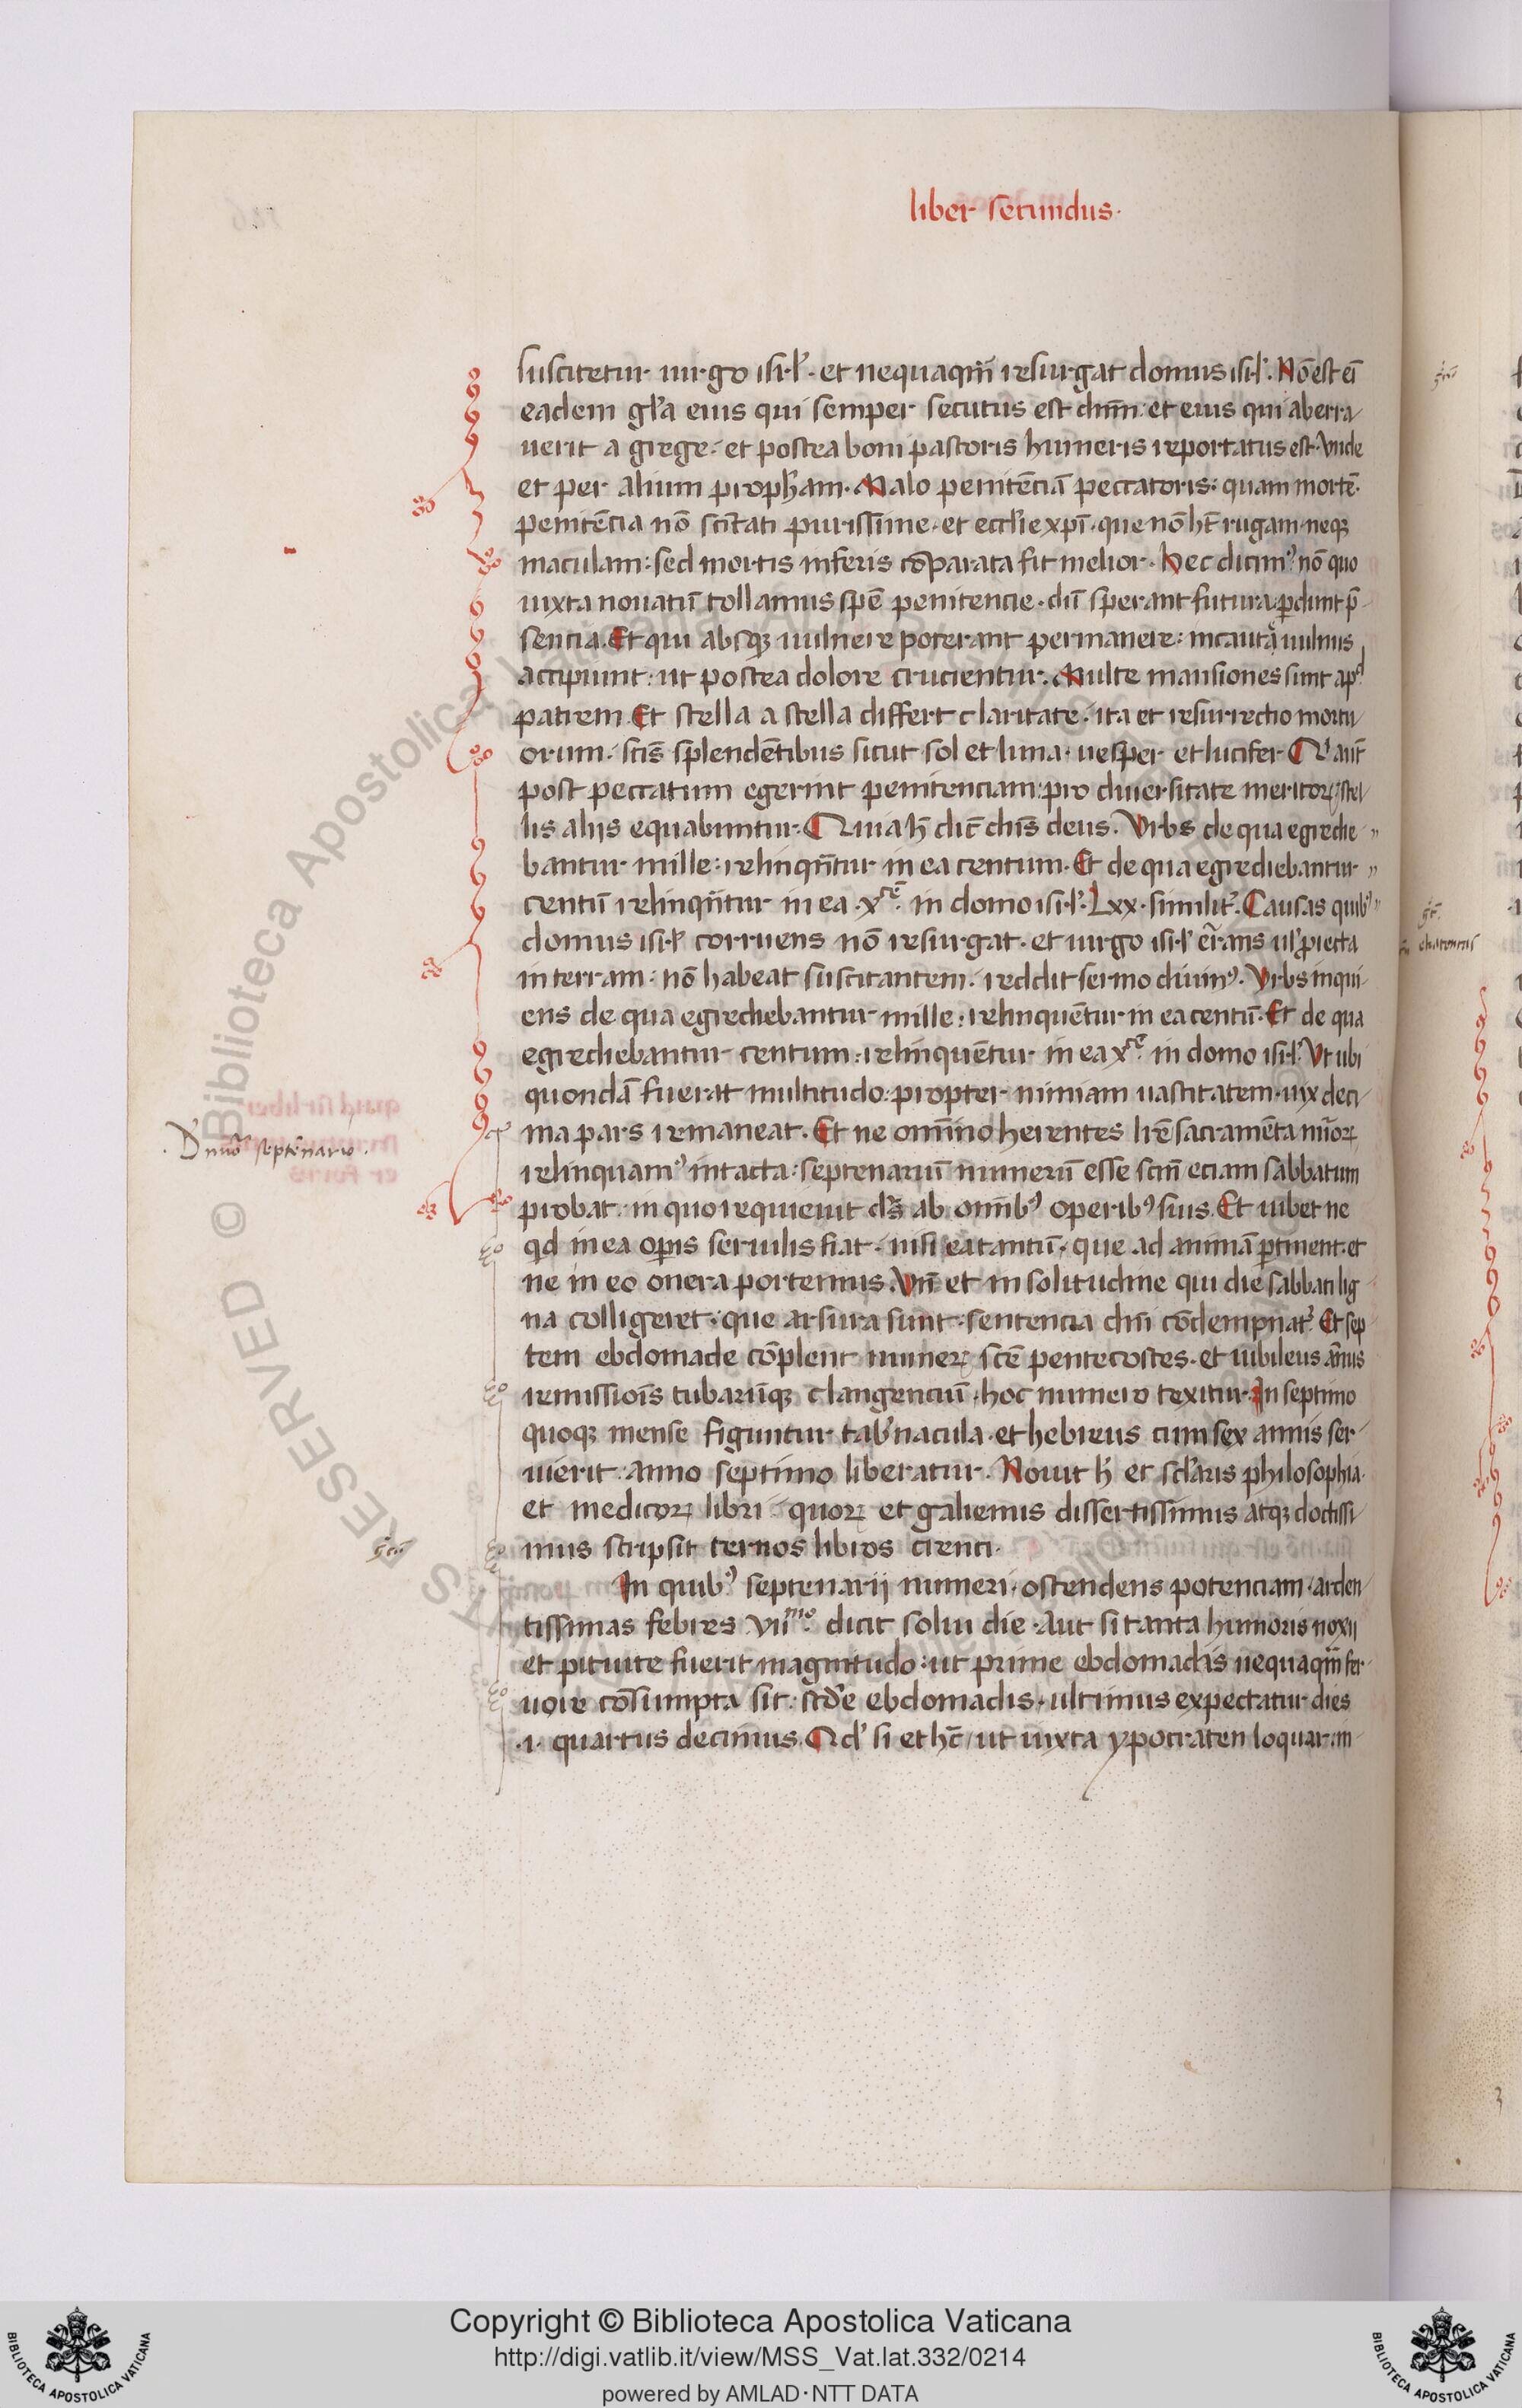 liber secundus·
suscitetur uirgo isrl̕· et nequaqm̄ resurgat domus isrl̕· Nō est ei
eadem gl̕a eius qui semper secutus est dn̄m· et eius qui aberra
uerit a grege· et postea boni pastoris humeris reportatus est· vnde
et per alium proph̕am· Malo penitēciā peccatoris: quam mortē·
penitēcia nō sc̄itati purissime· et eccl̕ie xp̄i· que nō h̄t rugam· neqꝫ
maculam: sed mortis inferis cōparata fit melior· Hec dicimꝰ nō quo
iuxta nouatū tollamus spē penitencie· dū sperant futura ꝑdunt p̄
sencia· Et qui absqꝫ uulnere poterant permanere: incauta uulnus
accipiunt: ut postea dolore crucientur· Multe mansiones sunt apd̕
patrem· Et stella a stella differt claritate· ita et resurrectio mortu
orum· sc̄is splendētibus sicut sol et luna· uesper et lucifer· Qi aut̄
post peccatum egerint penitenciam: pro diuersitate meritoꝝ stel
lis alijs equabuntur· Quia h̄ dic̄ dn̄s deus· Vrbs de qua egredie
bantur mille: relinqn̄tur in ea centum· Et de qua egrediebantur
centū relinqn̄tur in ea· xcē· in domo isrl̕· Lxx· similit̕· Causas quibꝰ
domus isrl̕ corruens nō resurgat· et uirgo isrl̕ errans ul̕ ꝓiecta
in terram: nō habeat suscitantem· reddit sermo diuinꝰ· Vrbs inqui
ens de qua egrediebantur mille: relinquētur in ea centū· Et de qua
egrediebantur centum: relinquētur in ea xcē· in domo isrl̕· Vt ubi
quondā fuerat multitudo: propter nimiam uastitatem· uix deci
ma pars remaneat· Et ne omīno herentes lr̄e sacramēta nūoꝝ
relinquamꝰ intacta: septenariū numerū esse sc̄m eciam sabbatum
probat· in quo requieuit ds̄ ab omībꝰ operibꝰ suis· Et iubet ne
qd in ea oꝑis seruilis fiat· nisi ea tantū· que ad animā ꝑtinent· et
ne in eo onera portemus· Vn̄ et in solitudine qui die sabbati lig
na colligeret· que arsura sunt· sentencia dn̄i cōdempnat̕· Et sep
tem ebdomade cōplent numeꝝ sc̄e pentecostes· et iubileus ānus
remissiois̄ tubarūqꝫ clangenciū· hoc numero texitur· In septimo
quoqꝫ mense figuntur tab̕nacula· et hebreus cum sex annis ser
uierit· anno septimo liberatur· Nouit h̕ et sc̄l̕aris philosophia·
et medicoꝝ libri· quoꝝ et galienus dissertissimus atqꝫ doctissi
mus scripsit ternos libros crenci·
In quibꝰ septenarij numeri· ostendens potenciam· arden
tissimas febres vii mo· dicit solui die· Aut si tanta humoris noxij
et pituite fuerit magnitudo: ut prime ebdomadis nequaqm̄ fer
uore cōsumpta sit· scd̕e ebdomadis· ultimus expectatur dies
·i· quartus decimus· Qd̕ si et hc̄/ ut iuxta ypocraten loquar· in
D̕ nūo septenario·
Copyright © Biblioteca Apostolica Vaticana
http://digi.vatlib.it/view/MSS_Vat.lat.332/0214
powered by AMLAD·NTT DATA
BIBLIOTECA APOSTOLICA VATICANA
BIBLIOTECA APOSTOLICA VATICANA